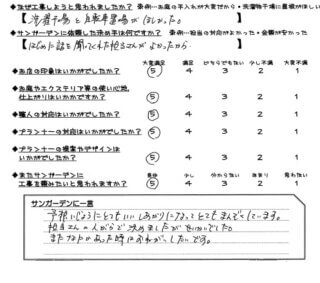 ◆なぜ工事しようと思われましたか？
【洗濯干場と自転車置場がほしかった。】
◆サンガーデンに依頼した決め手は何ですか？
【はじめに話を聞いてくれた担当さんがよかったから】
大変満足 満足 どちらでもない 少し不満 大変不満
◆お店の印象はいかがでしたか？ 5 4 3 2 1
◆お庭やエクステリア等の使い心地、
仕上がりはいかがですか？ 5 4 3 2 1
◆職人の対応はいかがでしたか？ 5 4 3 2 1
◆プランナーの対応はいかがでしたか？ 5 4 3 2 1
◆プランナーの提案やデザインは
いかがでしたか？ 5 4 3 2 1
◆またサンガーデンに
工事を頼みたいと思われますか？ 5 4 3 2 1
サンガーデンに一言
予想いじょうにとてもいいしあがりになってとてもまんぞくしています。
担当さんの人がらで決めましたがせいかいでした。
またなにかあった時はおねがいしたいです。